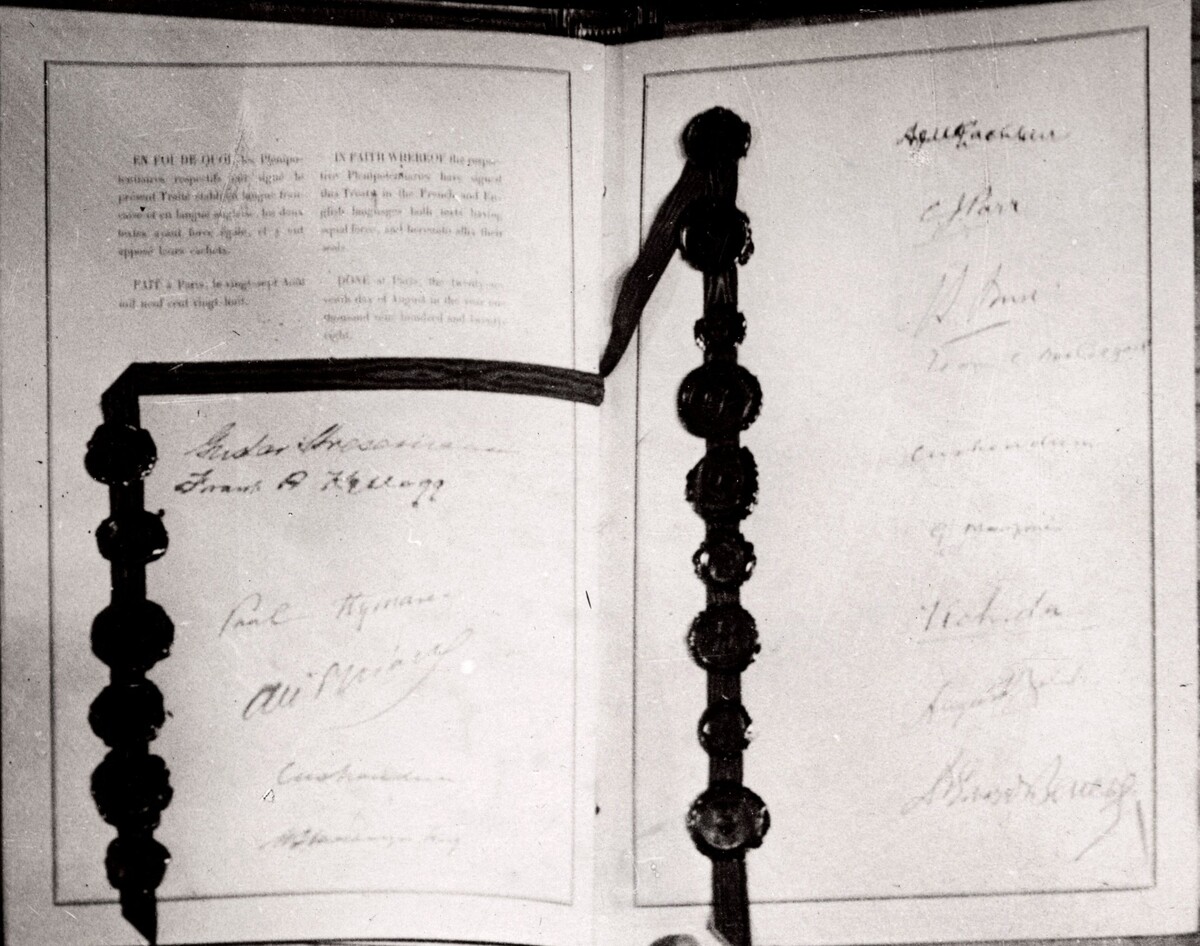 EN FOI DE QUOI, les Plénipo-
tentiaires respectifs ont signé le
présent Traité établi en langue fran-
çaise et en langue anglaise, les deux
textes ayant force égale, et y ont
apposé leurs cachets.
FAIT à Paris, le vingt-sept Août
mil neuf cent vingt-huit.
IN FAITH WHEREOF the respec-
tive Plenipotentiaries have signed
this Treaty in the French and En-
glish languages both texts having
equal force, and hereunto affix their
seals.
DONE at Paris, the twenty-se-
venth day of August in the year one
thousand nine hundred and twenty-
eight.
Gustav Stresemann
Frank B Kellogg
Paul Hymans
Ari Briand
Cushendun
W L Mackenzie King
C J Parr
Cushendun
G Manzoni
Uchida
August Zaleski